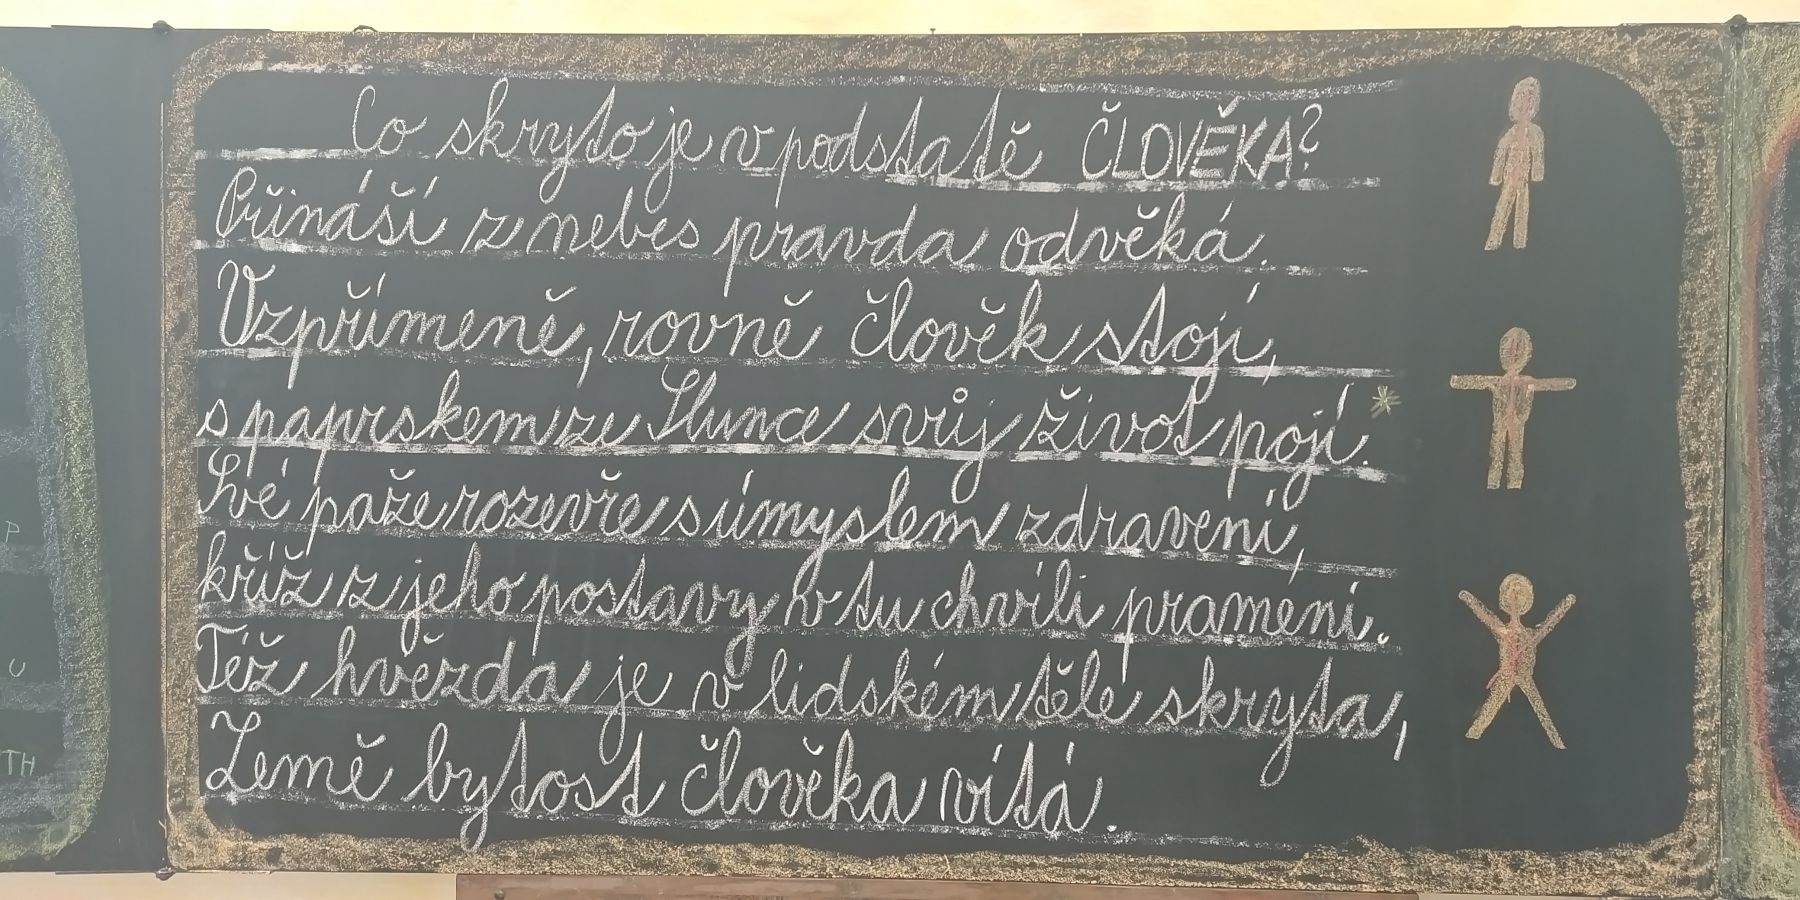 Co skryto je v podstatě ČLOVĚKA?
Přináší z nebes pravda odvěká.
Vzpřímeně, rovně člověk stojí,
s paprskem ze Slunce svůj život pojí.
Své paže rozevře s úmyslem zdravení,
kříž z jeho postavy v tu chvíli pramení.
Též hvězda je v lidském těle skryta,
Země bytost člověka vítá.
P
U
TH